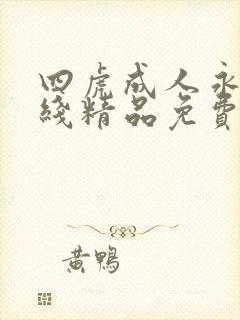 四虎成人永
綫精品免費
黃鴨